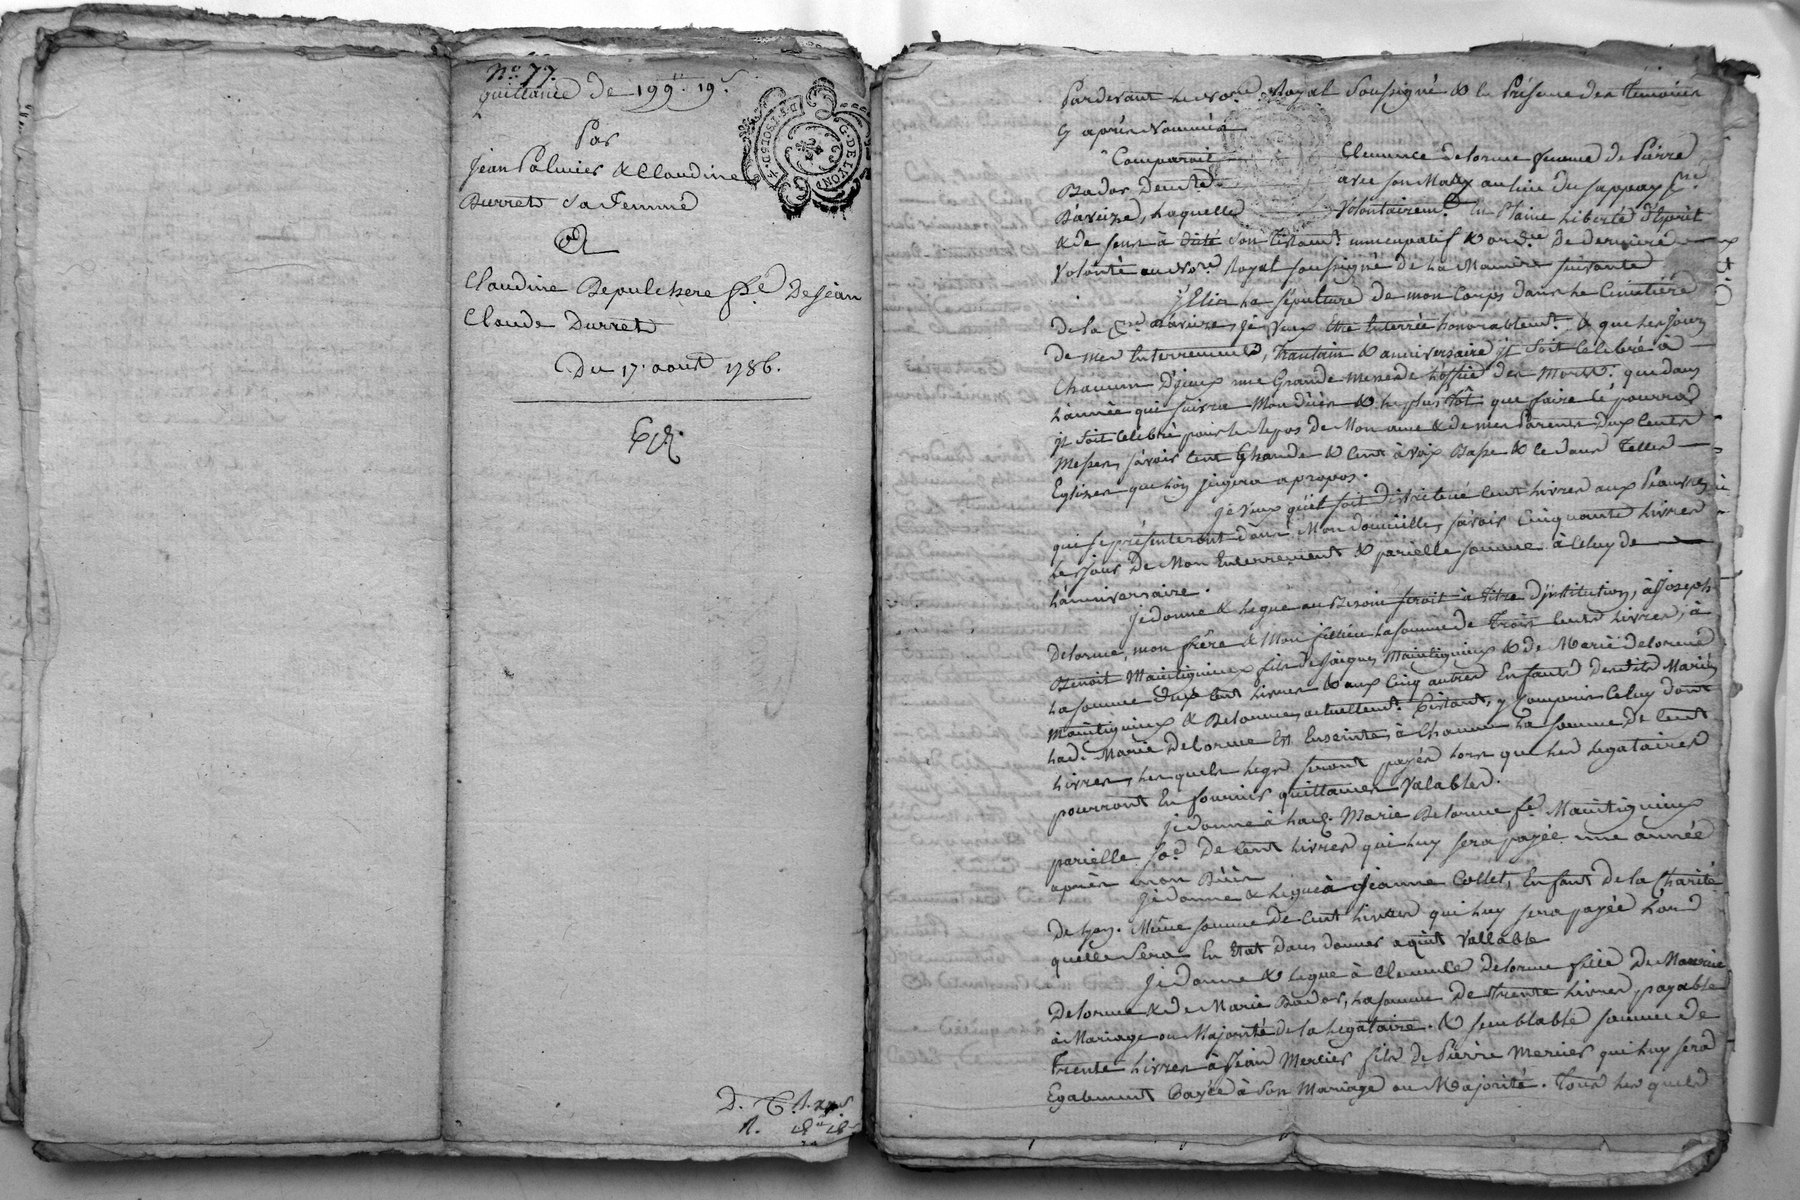 N.° 77.
quittance de 199.ᵗᵗ 19.ˢ
Par
jean Palmier & Claudine
Durret sa femme
A
Claudine Depulchere f.e De jéan
Claude Durret
Du 17. aout 1786.
G. DE LYON
Pardevant le no.re Royal soussigné & en Présence des témoins
cy après nommés
Comparoit Clemence delorme femme de Pierre
Bador avec son mary au lieu du
D'aveize, laquelle volontairem.t en plaine liberté d'Esprit
& de sens à dicté son testam.t nuncupatif & ord.re de derniere
volonté au no.re Royal soussigné de la maniere suivante
j'Elis la sépulture de mon Corps dans le Cimétiére
de la d'aveize, je veux Etre Enterrée honorablem.t & que les jours
de mes Enterrement, & anniversaire jt soit Célébré à
Chacun D'yceux une Grande messe de l'office des morts. que dans
l'année qui suivra mon décès & le plus tôt que faire cé pourra
jt soit Célébré pour le repos de mon ame & de mes Parents deux Cents
messes, savoir Cent Grandes & Cent à voix Basse & ce dans telles
Eglises que l'on jugera apropos.
je veux qu'il soit distribué Cent livres aux Pauvres
qui se présenteront dans mon domicille, savoir Cinquante livres
le jour de mon Enterrement & parielle somme à Celuy de
l'anniversaire.
je donne & legue au Besoin seroit à titre d'jnstitution, à Joseph
Delorme, mon frére & mon filleu la somme de trois Cents livres, à
Benoit Maintignieux fils de jacques Maintignieux & de Marie delorme
la somme deux Cent livres & aux Cinq autres Enfants desdits Mariés
Maintigneux & Delorme, actuellem.t Existant, y compris Celuy dont
lad.e Marie Delorme Est Enseinte, à Chacun la somme de Cent
livres, les quels legs seront payés lors que les legataires
pourront En fournir quittances valables.
je donne à lad.e Marie Delorme f.e Maintignieux
parielle so.e De Cent livres qui luy sera payée une année
après mon Décès
je donne & legue à Jeanne Collet, Enfant de la Charité
de Lyon. Même somme de Cent livres qui luy sera payée lors
quelle sera En Etat d'en donner aquit vallable
je donne & legue à Clemence Delorme fille de Maurice
Delorme & de Marie Bador, la somme De trente livres, payable
à Mariage ou Majorité de la legataire. & semblable somme de
trente livres à Jean Mercier fils de Pierre Mercier qui luy sera
Egalement Payée à son Mariage ou Majorité. Tous les quels